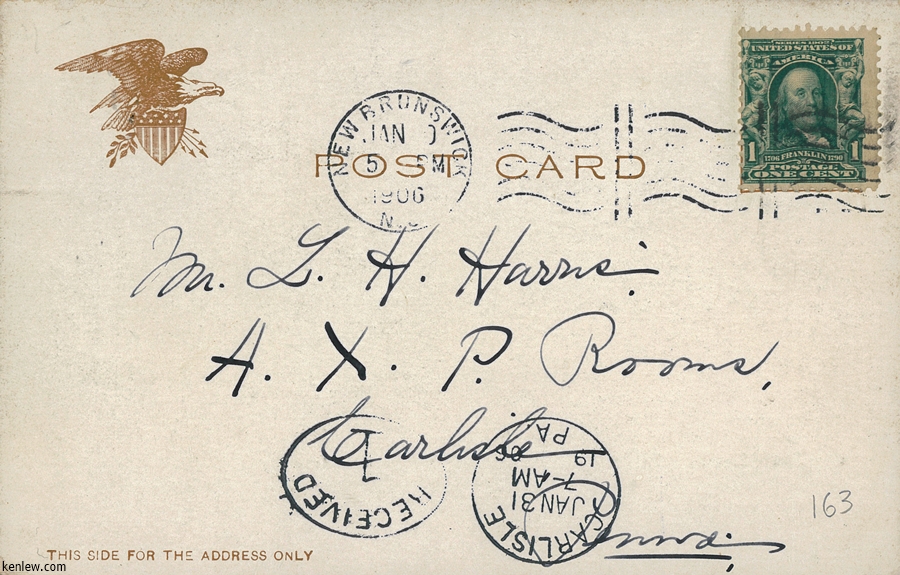 SERIES 1902
UNITED STATES OF
AMERICA
1 1706 FRANKLIN 1790 1
POSTAGE
ONE CENT
NEW BRUNSWICK
JAN
5 PM
1906
N.J
POST CARD
Mr. L. H. Harris.
A. X. P. Rooms,
Carlisle
Penna.
RECEIVED
1
CARLISLE
JAN 31
7-AM
19 06
PA
163
THIS SIDE FOR THE ADDRESS ONLY
kenlew.com